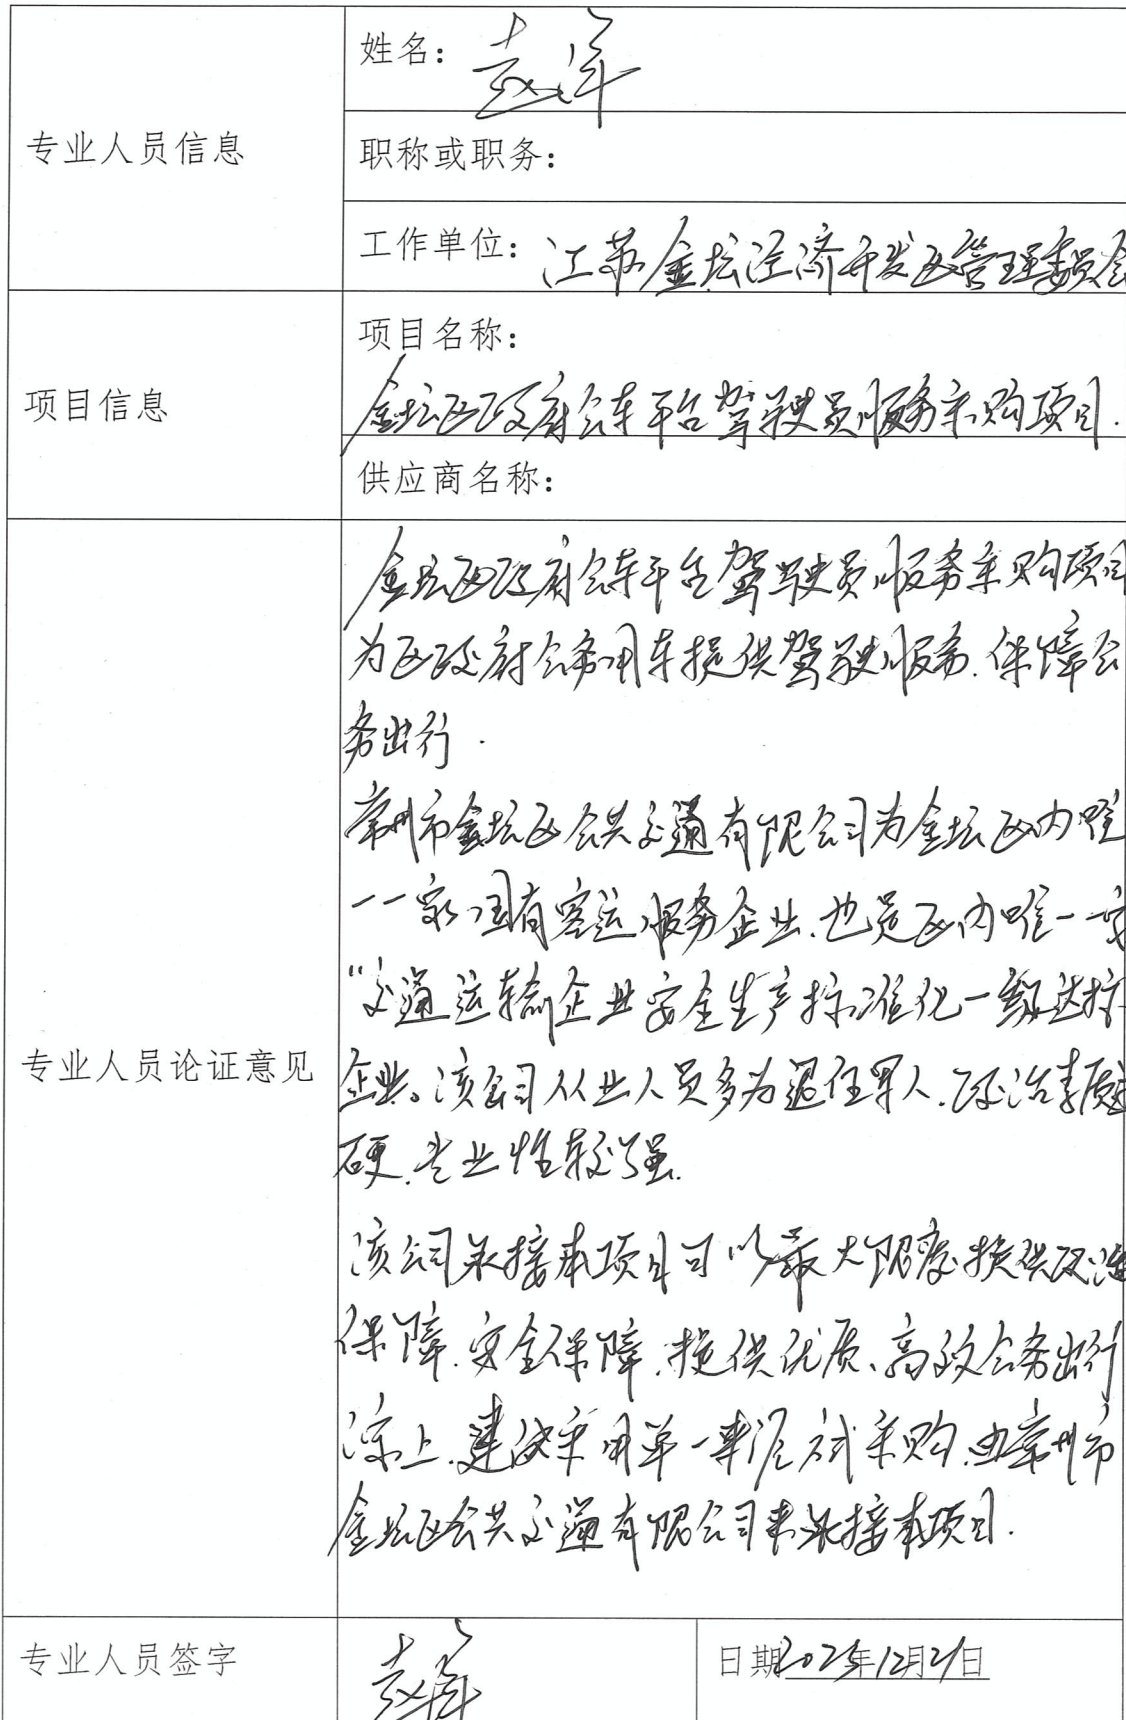 专业人员信息
姓名：
职称或职务：
工作单位：江苏金坛经济开发区管理委员会
项目信息
项目名称：
金坛区政府公车平台驾驶员服务采购项目.
供应商名称：
专业人员论证意见
金坛区政府公车平台驾驶员服务采购项目
为区政府公务用车提供驾驶服务.保障公
务出行.
常州市金坛区公共交通有限公司为金坛区内唯
一一家国有客运服务企业.也是区内唯一一家
“交通运输企业安全生产标准化一级达标
企业。该公司从业人员多为退任军人.政治素质
硬.专业性较强.
该公司承接本项目可以最大限度提供政治
保障.安全保障.提供优质、高效公务出行
综上.建议采用单一来源方式采购.由常州市
金坛区公共交通有限公司来承接本项目.
专业人员签字
日期2025年12月21日